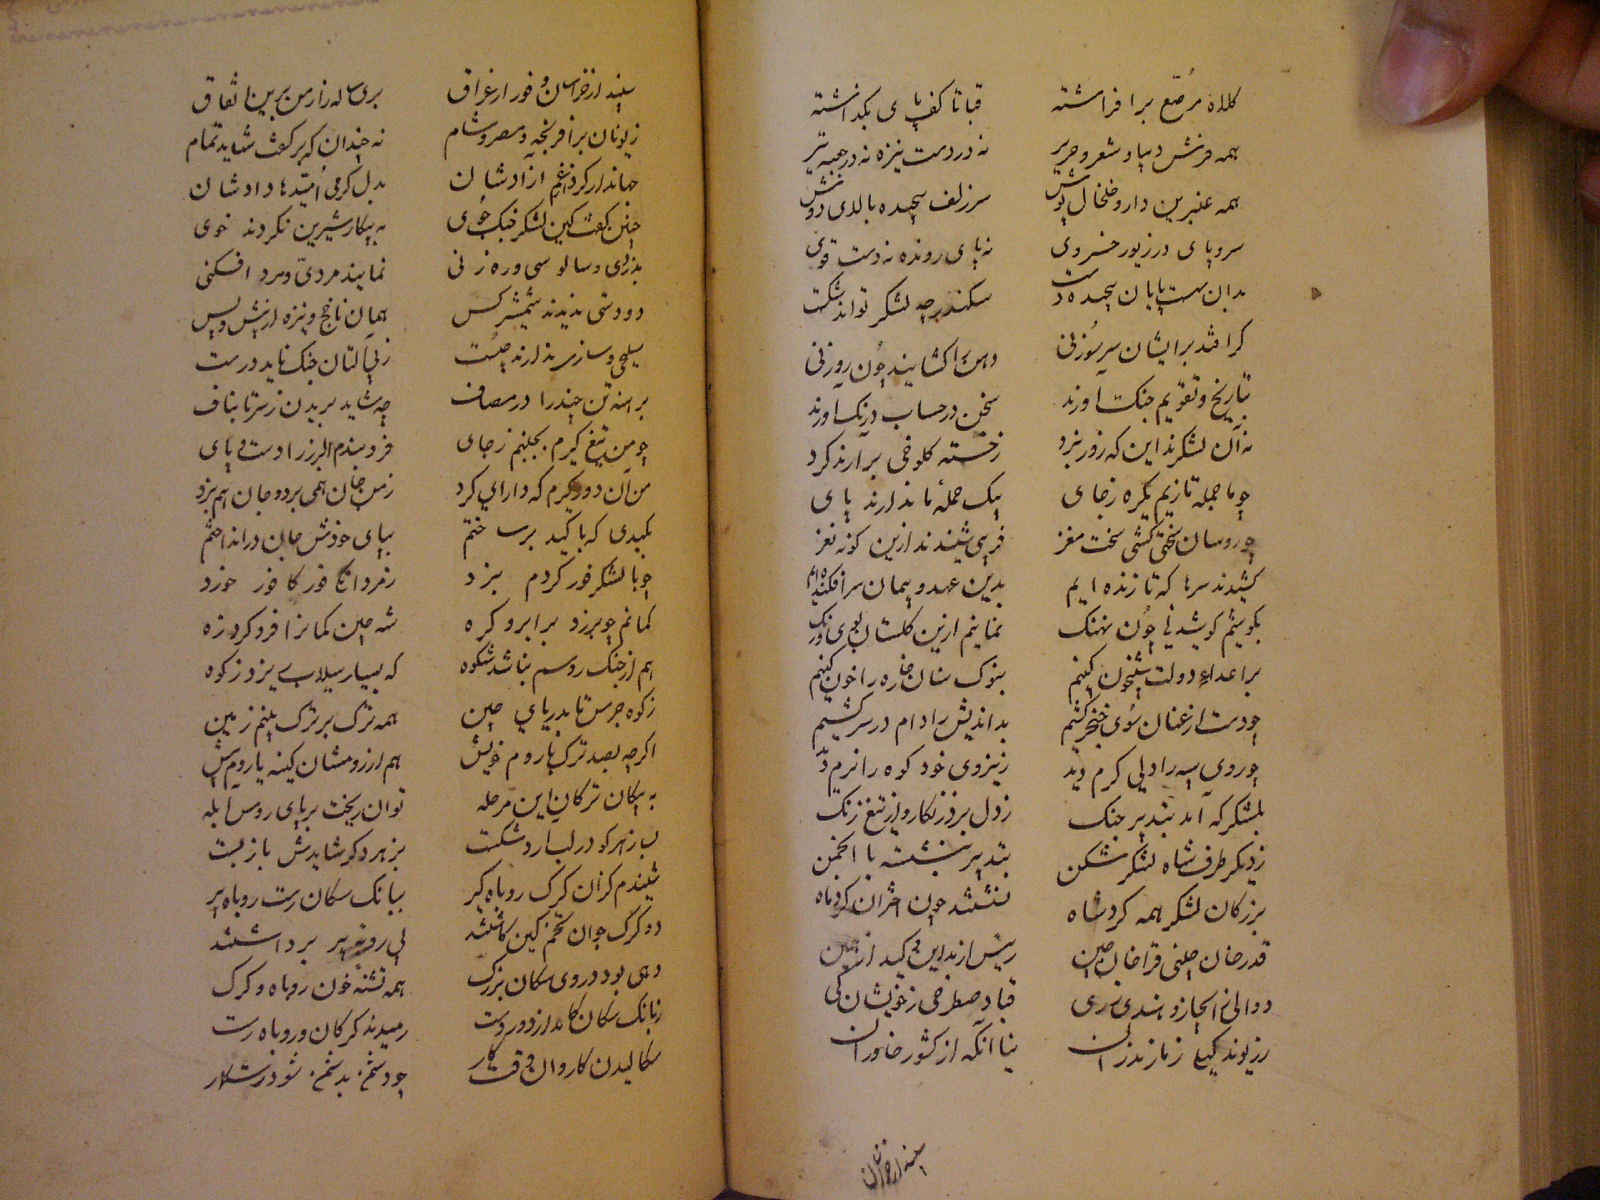 کلاه مرصّع برافراشته قبا تا کف پای بگذاشته
همه فرش دیبا و شعر و حریر نه در دست نیزه نه در جعبه تیر
همه عنبرین دار و خلخال پوش سر زلف پیچیده بالای دوش
سر و پای در زیور خسروی نه پای رونده نه دست قوی
بدان سست پایان پیچیده دست سکندر چه لشکر تواند شکست
گر افتد برایشان سر سوزنی دهن را گشایند چون روزنی
بتاریخ و تقویم جنگ آورند سخن در حساب درنگ آورند
نه آن لشکرند این که روز نبرد ز خسته کلوخی برآرند گرد
چو ما جمله تازیم یکره ز جای بیک حملهٔ ما ندارند پای
چو روسان سختی کشی سخت مغز فریبی شنیدند ازین گونه نغز
کشیدند سرها که تا زنده ایم بدین عهد و پیمان سرافکنده ایم
بکوشیم کوشیدنی چون نهنگ نمانیم ازین گلستان بوی و رنگ
بر اعداء دولت شبیخون کنیم بنوک سنان خاره را خون کنیم
چو دست از عنان سوی خنجر کشیم بداندیش را دام در سر کشیم
چو روسی سپه را دلی گرم دید ز نیروی خود کوه را نرم دید
بلشکرگه آمد بتدبیر جنگ ز دل برد زنگار و از تیغ زنگ
ز دیگر طرف شاه لشکرشکن بتدبیر بنشست با انجمن
بزرگان لشکر همه گرد شاه نشستند چون اختران گرد ماه
قدرخان ز چینی قراخان چین
دوالی ز ابخاز و هندی ز ری قباد صطرخی ز خویشان کی
ریوند گیلی ز مازندران نیا آنکه از کشور خاوران
سپند از خراسان
سپند از خراسان و فور از عراق بری ساله زارمن برین اتفاق
ز یونان بر افرنجه و مصر و شام نه چندان که بر گفت شاید تمام
جهاندار کرد از غم آزادشان بدل گرمی امیدها دادشان
چنین گفت کین لشکر جنگ جوی به پیکار شیرین نکردند خوی
بدزدی و سالوسی و ره زنی نمایند مردی و مرد افکنی
دو دستی ندیدند شمشیر کس همان ناچخ و نیزه از پیش و پس
سلیحی و سازی ندارند چست ز بی آلتان جنگ ناید درست
برهنه تن چند را در مصاف چه شاید بریدن ز سر تا بناف
چو من تیغ گیرم بجنبم ز جای فرو بندم البرز را دست و پای
من آن دود کردم که دارای کرد ز من جان همی برد و جان هم نبرد
بکیدی که با کید بر ساختم بپای خودش جان درانداختم
چو با لشکر فور کردم نبرد ز مردانگی فور کافور خورد
کمانم چو بر زد بر ابرو گره شه چین کمانرا فرو کرد زه
هم از جنگ روسم نباشد شکوه که بسیار سیلاب ریزد ز کوه
ز کوه جرس تا بدریای چین همه ترک بر ترک بینم زمین
اگر چه نشد ترک با روم خویش هم از رومشان کینه با روس بیش
به پیکان ترکان این مرحله توان ریخت بر پای روس آبله
بسا زهر کو در لب آرد شکست بزهر دگر شایدش باز بست
شنیدم کزان گرگ روباه گیر ببانگ سگان رست روباه پیر
دو گرگ جوان تخم کین کاشتند پی روبه پیر برداشتند
دهی بود در وی سگان بزرگ همه تشنه خون روباه و گرگ
ز بانگ سگان کامد از دور دست رمیدند گرگان و روباه رست
سگالیدن کاردان وقت کار چو دشمن بدشمن شود رستگار